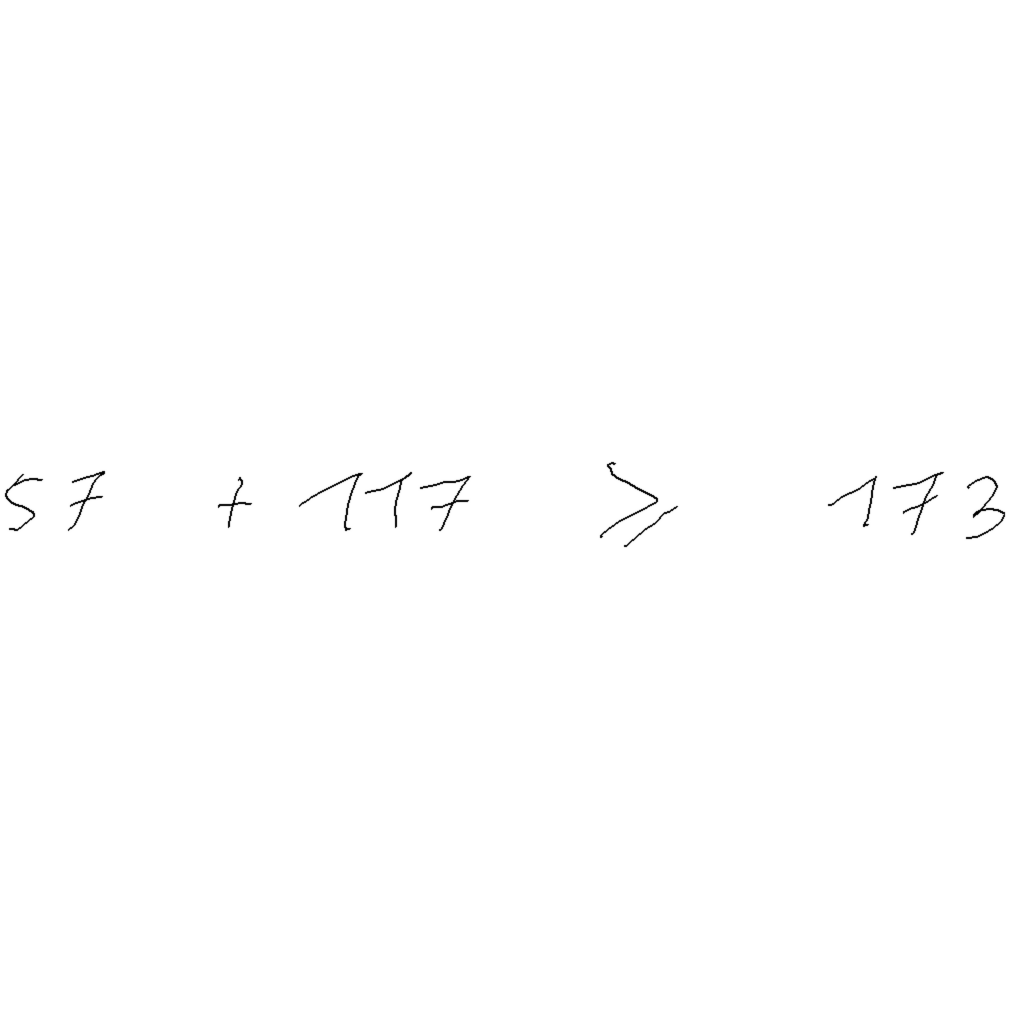 57 + 117 ⩾ 173